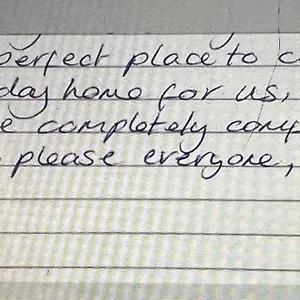 perfect place to c
day home for us,
e completely comp
please everyone,